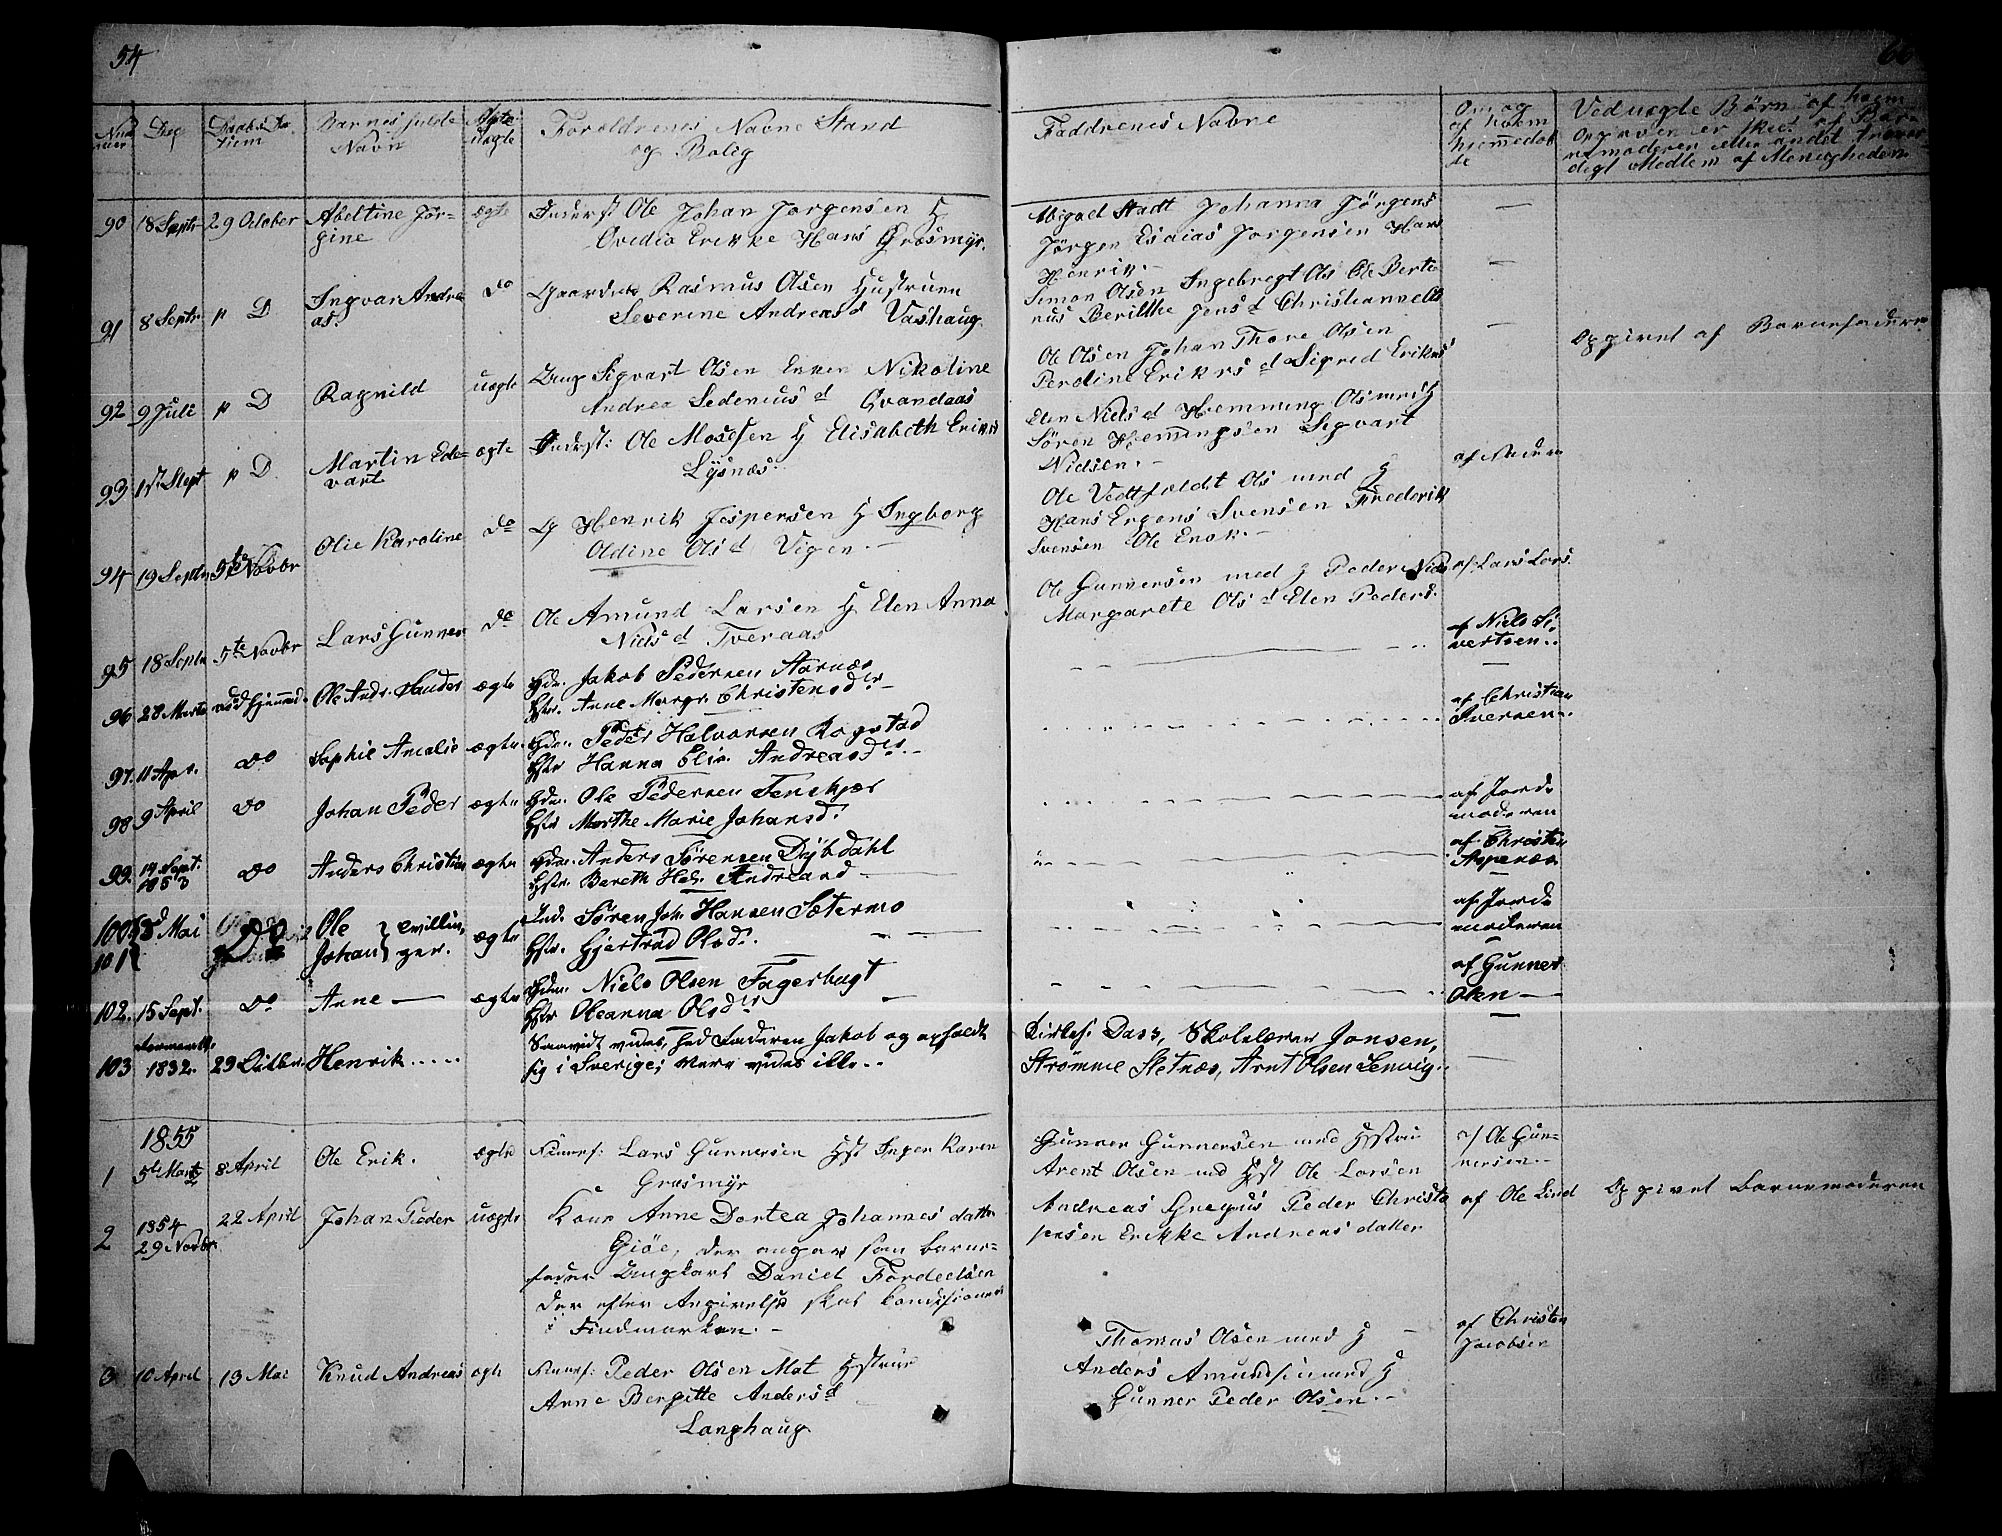 54
Num
mer
Dag
Daabs Da-
tiem
Barnes fulde
Navn
Ægte
Uægte
Foreldrenes Navne Stand
og Bolig
Faddrenes Navne
Om og
af hvem
hjemmedøb
de
Ved uægte Børn af hvem
Opgaven er skeet af Bar-
nemoderen eller andet troevær
digt Medlem af Menigheden
90 18 Septr 29 October Abeltine Jør-
gine
ægte
Inderst Ole Johan Jørgensen H
Ovedia Erikke Hans Græsmyr.
Abigael Stadt Johanna Jörgens
Jörgen Esaias Jorgensen Hans
Henrik.-
91 8 Septr p D Ingvar Andre
as.
do
Gaardm Rasmus Olsen Hustruen
Severine Andreas d Vashaug
Simon Olsen Ingebregt Ols Ole Berte
nus Berithe Jens d Christianvelts
92 9 Juli p D Ragnild uægte
Ung Sigvart Olsen Enken Nikoline
Andrea Sedenius d Qvandaas
Ole Olsen Johan Thore Olsen
Peroline Eriks d Sigred Eriks
Opgivet af Barnefaderen
93 17 Sept p D Martin Ede-
vart
ægte
Inderst: Ole Mosesen H Elisabeth Eriks
Lysnæs.
Elen Niels d Hemming Ols med H
Sören Hemmingsen Segvart
Nielsen.-
af Faderen
94 19 Septr 5te Novbr Olie Karoline do
G Henrik Jespersen H Ingborg
Oldine Ols d Vigen.-
Ole Vedtfeldt Ols med H
Hans Ergens Svensen Frederik
Svensen Ole Enok.-
af Lars Lars.
95 18 Septr 5te Novbr Lars Gunner do
Ole Amund Larsen H Elen Anna
Niels d Tveraas
Ole Gunnersen med H Peder Niels
Margarete Ols d Elen Peders.
af Niels Si-
vertsen..
96 28 Marts Ole Andr. Sander ægte
Gdm. Jakob Pedersen Aarnæs
Hstr. Anne Margr. Christensdr
af Christian
Iversen..
97. 11 Apr. do Sophie Amalie ægte.
Gdm. Peder Halvorsen Rogstad
Hstr Hanna Elis. Andreasdr.
98 9 April do Johan Peder ægte
Gdm. Ole Pedersen Tenskjær
Hstr Marthe Marie Johansd.
af Jord-
moderen
99. 14 Sept.
1853
do Anders Christian ægte
Gdm. Anders Sørensen Dybdahl
Hstr. Bereth Hed. Andreasd
af Christen
Aspenæs
100 8 Mai Do Ole
101 Johan
tvillin-
ger.
ægte
Ind. Søren Joh. Hansen Sætermo
Hstr. Gjertrud Olsd.
af Jord-
moderen
102. 15 Sept. do Anne ægte
Gdm. Niels Olsen Fagerbugt
Hstr Oleanna Olsdr
af Gunner
Olsen
103 1832. 29 Octbr. Henrik.....
Saavidt vides, hed Faderen Jakob og opholdt
sig i Sverige; Mere vides ikke..
Kirkes. Dass, Skolelærer Jonsen,
Strømme Stetnæs, Arnt Olsen Lenvig.
1855
1 5te Marts 8 April Ole Erik. ægte
Finnef: Lars Gunnersen Hst Inger Karen
Græsmyr
Gunner Gunnersen med Hstru
Arent Olsen med Hst Ole Larsen
af Ole Gun-
nersen.-
2 1854
29 Novbr. 22 April Johan Peder uægte
Kone Anne Dortea Johannes datter
Gjöe, der angav som barne-
fader Ungkarl Daniel Fordeelsen
der efter Angivelse skal konditionere
i Findmarken.-
Andreas Gregus Peder Christo
persen Erikke Andreas datter
af Ole Lind
Opgivet barnemoderen
3 10 April 13 Mai Knud Andreas ægte
Finnef: Peder Olsen Mat Hstrue
Anne Bergitte Anders d
Langhaug
Thomas Olsen med H
Anders Amundsen med H
Gunner Peder Olsen.-
af Christen
Jacobsen